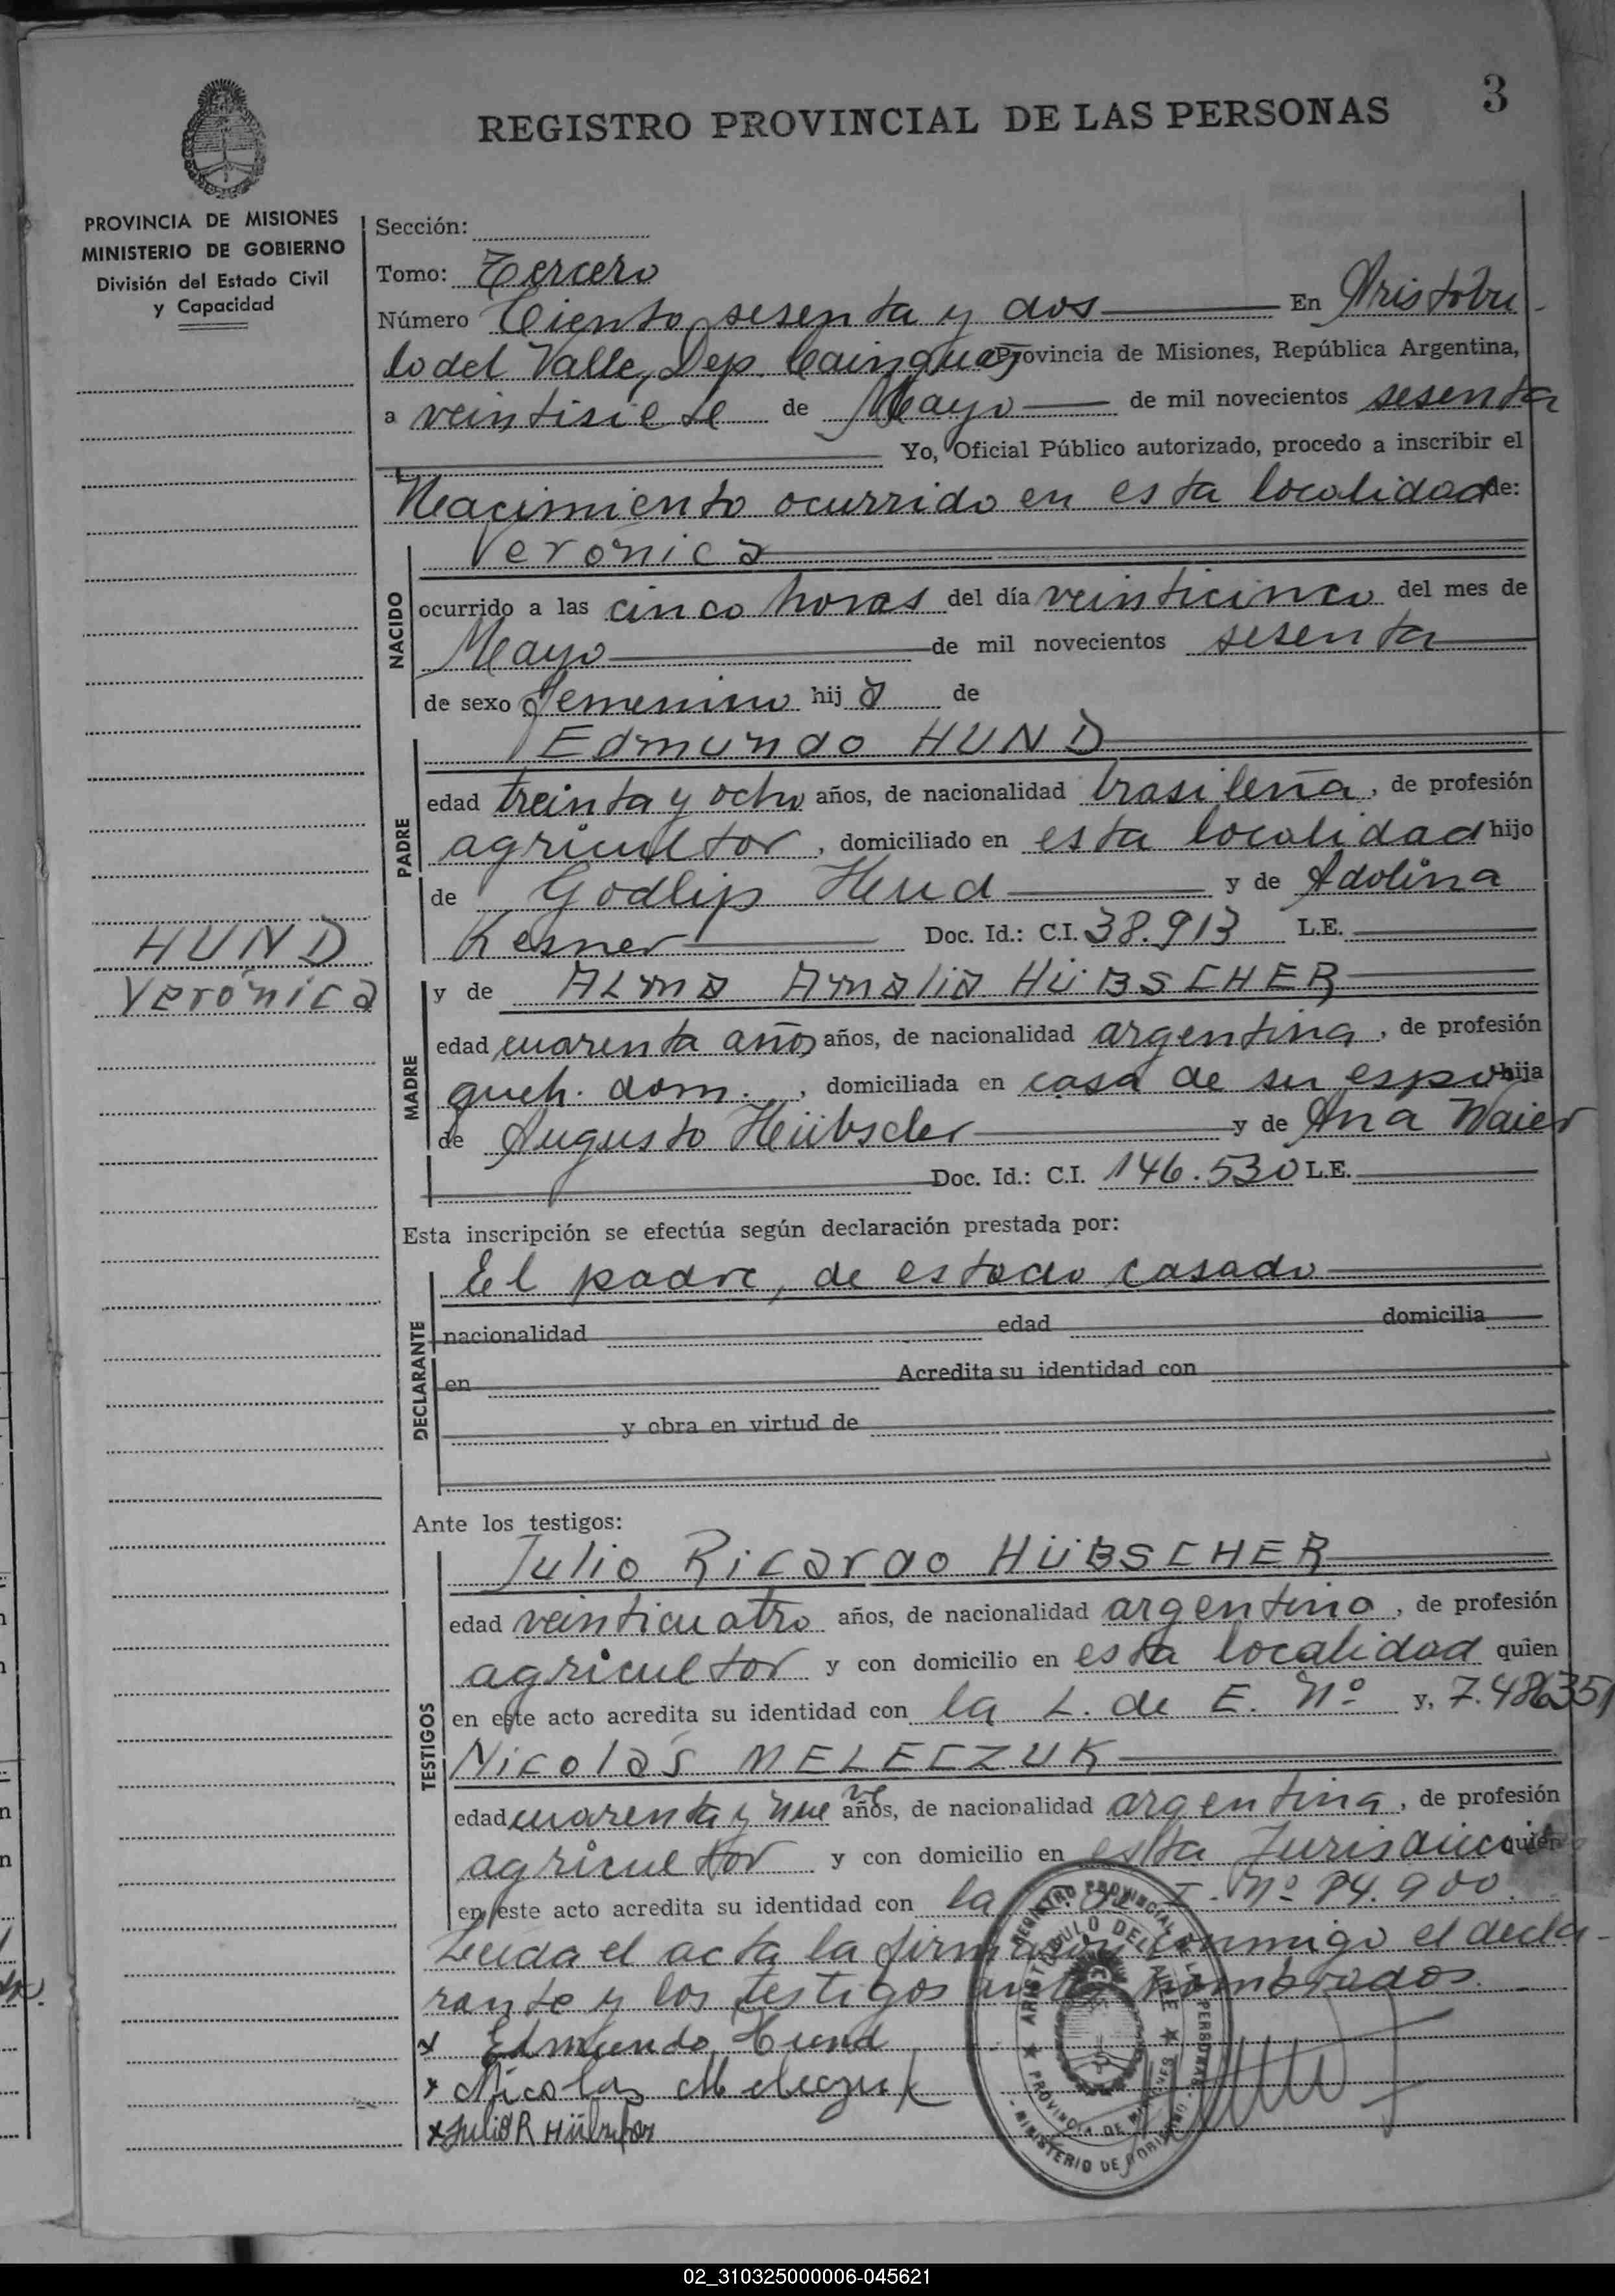 3
REGISTRO PROVINCIAL DE LAS PERSONAS
PROVINCIA DE MISIONES
MINISTERIO DE GOBIERNO
División del Estado Civil
y Capacidad
HUND
Verónica
Sección:
Tomo: Tercero
Número Ciento sesenta y dos En Aristóbu-
lo del Valle, Dep. Cainguas Provincia de Misiones, República Argentina,
a veintisiete de Mayo de mil novecientos sesenta
Yo, Oficial Público autorizado, procedo a inscribir el
Nacimiento ocurrido en esta localidad de:
NACIDO
Verónica
ocurrido a las cinco horas del día veinticinco del mes de
Mayo de mil novecientos sesenta
de sexo femenino hija de
PADRE
Edmundo HUND
edad treinta y ocho años, de nacionalidad brasileña, de profesión
agricultor, domiciliado en esta localidad hijo
de Godlip Hund y de Adolina
Kesner Doc. Id.: C.I. 38.913 L.E.
MADRE
y de Alma Amalia HÜBSCHER
edad cuarenta años años, de nacionalidad argentina, de profesión
queh. dom., domiciliada en casa de su esposo hija
de Augusto Hübscher y de Ana Waier
Doc. Id.: C.I. 146.530 L.E.
Esta inscripción se efectúa según declaración prestada por:
DECLARANTE
El padre, de estado casado
nacionalidad edad domicilia
en Acredita su identidad con
y obra en virtud de
Ante los testigos:
TESTIGOS
Julio Ricardo HÜBSCHER
edad veinticuatro años, de nacionalidad argentina, de profesión
agricultor y con domicilio en esta localidad quien
en este acto acredita su identidad con la L. de E. Nº y, 7.486351
Nicolás MELECZUK
edad cuarenta y nueve años, de nacionalidad argentina, de profesión
agricultor y con domicilio en esta Jurisdicció quien
en este acto acredita su identidad con la I. Nº 84.900.
Leida el acta la firman conmigo el decla-
rante y los testigos antes nombrados.
x Edmundo Hund
x Nicolas Meleczuk
x Julio R Hübscher
REGISTRO PROVINCIAL DE LAS PERSONAS
ARISTOBULO DEL VALLE
PROVINCIA DE MISIONES
MINISTERIO DE GOBIERNO
02_310325000006-045621